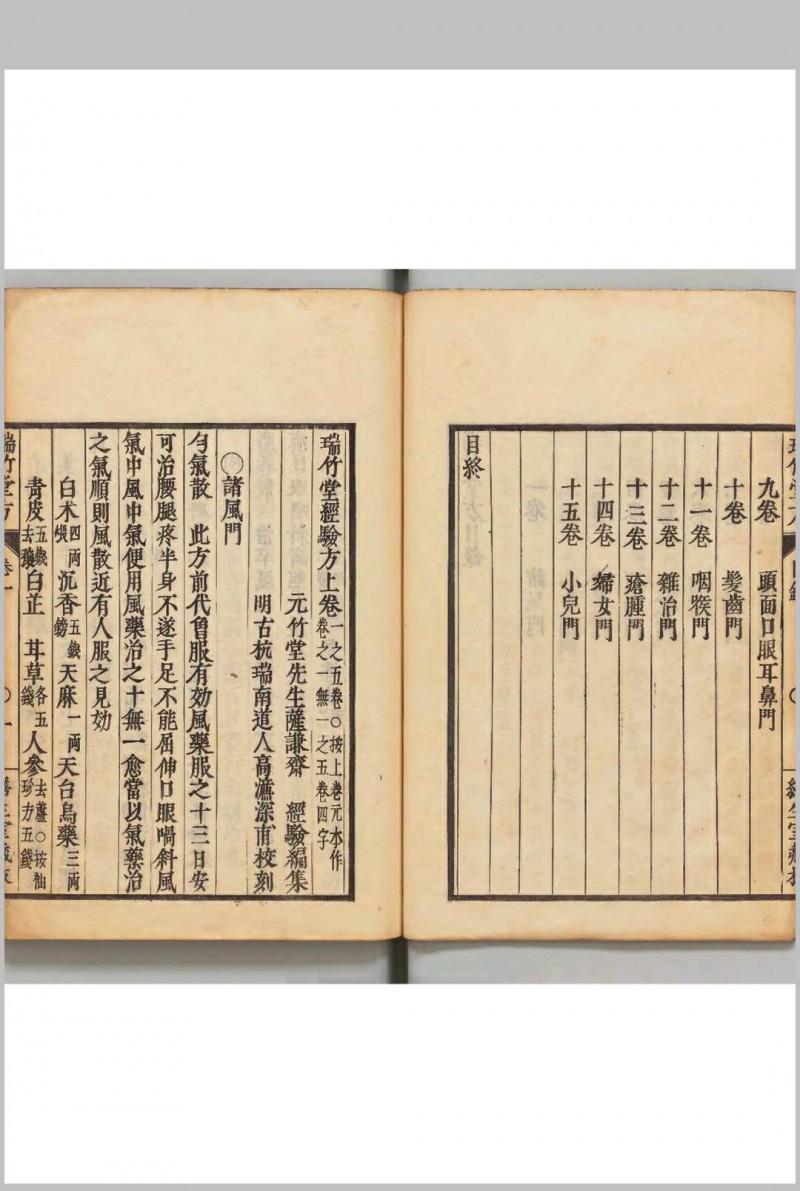 九卷　頭面口眼耳鼻門
十卷　髮齒門
十一卷　咽喉門
十二卷　雜治門
十三卷　瘡腫門
十四卷　婦女門
十五卷　小兒門
目終
瑞竹堂經驗方上卷一之五卷○按上卷元本作卷之一無一之五卷四字
元竹堂先生薩謙齋　經驗編集
明古杭瑞南道人高濂深甫校刻
○諸風門
勻氣散　此方前代曾服有効風藥服之十三日安
可治腰腿疼半身不遂手足不能屈伸口眼喎斜風
氣中風中氣便用風藥治之十無一愈當以氣藥治
之氣順則風散近有人服之見効
白术四兩煨　沉香五錢鎊　天麻一兩　天台烏藥三兩
青皮五錢去穰　白芷　甘草各五錢　人參去蘆○按袖珍方五錢
瑞竹堂方　卷一　○　一